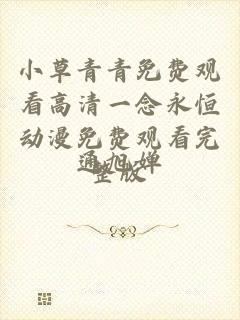 小草青青免费观
看高清一念永恒
动漫免费观看完
整版
通旭婵